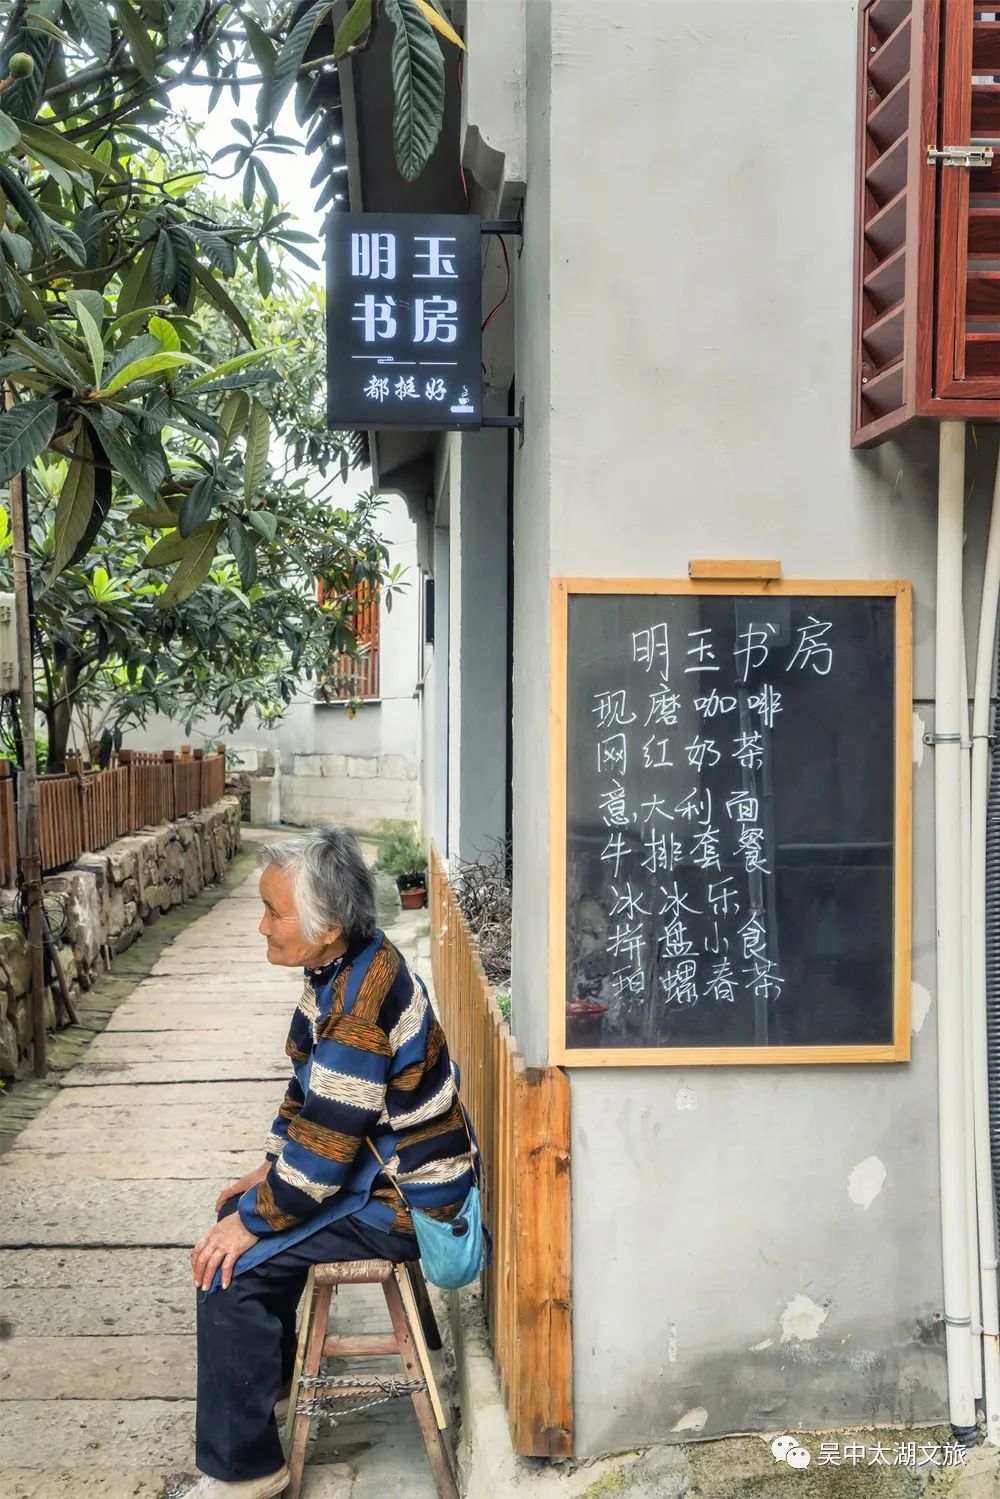 明玉
书房
都挺好
明玉书房
现磨咖啡
网红奶茶
意大利面
牛排套餐
冰冰乐
拼盘小食
珀螺春茶
吴中太湖文旅